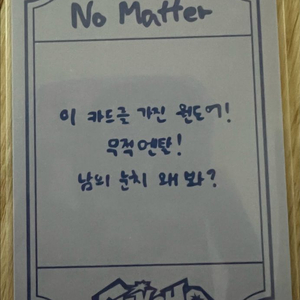 No Matter
이 카드를 가진 원도어!
무적멘탈!
남의 눈치 왜 봐?